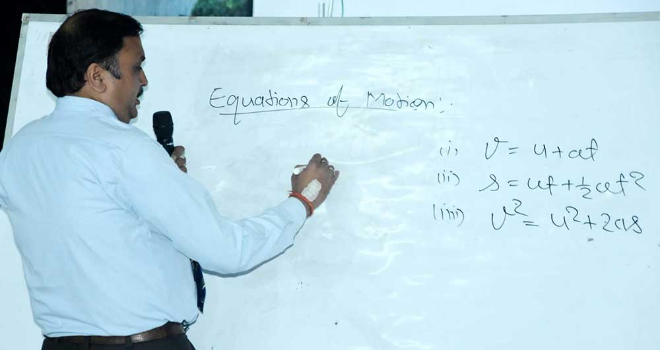 Equations of Motion:-
(i) v = u + at
(ii) s = ut + ½ at²
(iii) v² = u² + 2as